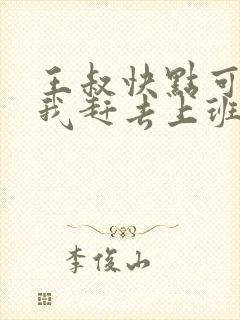 王叔快點可
我赶去上班
李俊山